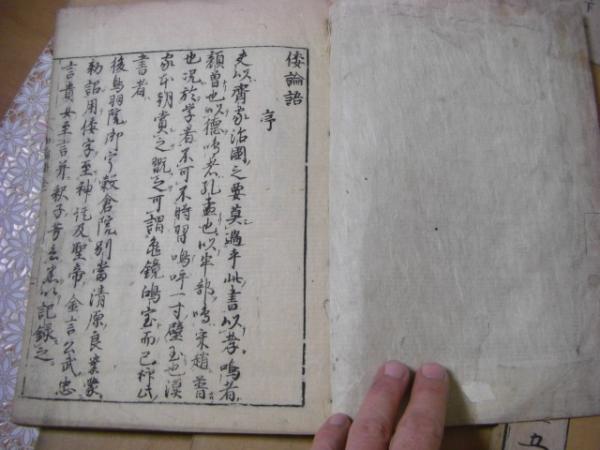 倭論語
序
夫以齊家治國之要莫過乎此書以孝鳴者
顔曽也以德鳴者孔孟也以半部鳴宋趙普
也况於学者不可不時習嗚呼一寸璧玉也漢
家本朝賞之翫之可謂亀鏡鴻宝而已抑此
書者
後鳥羽院御宇穀倉院別當清原良業蒙
勅詔用倭字至神託及聖帝金言公武忠
言貴女至言并釈子芳言悉以記録之
五